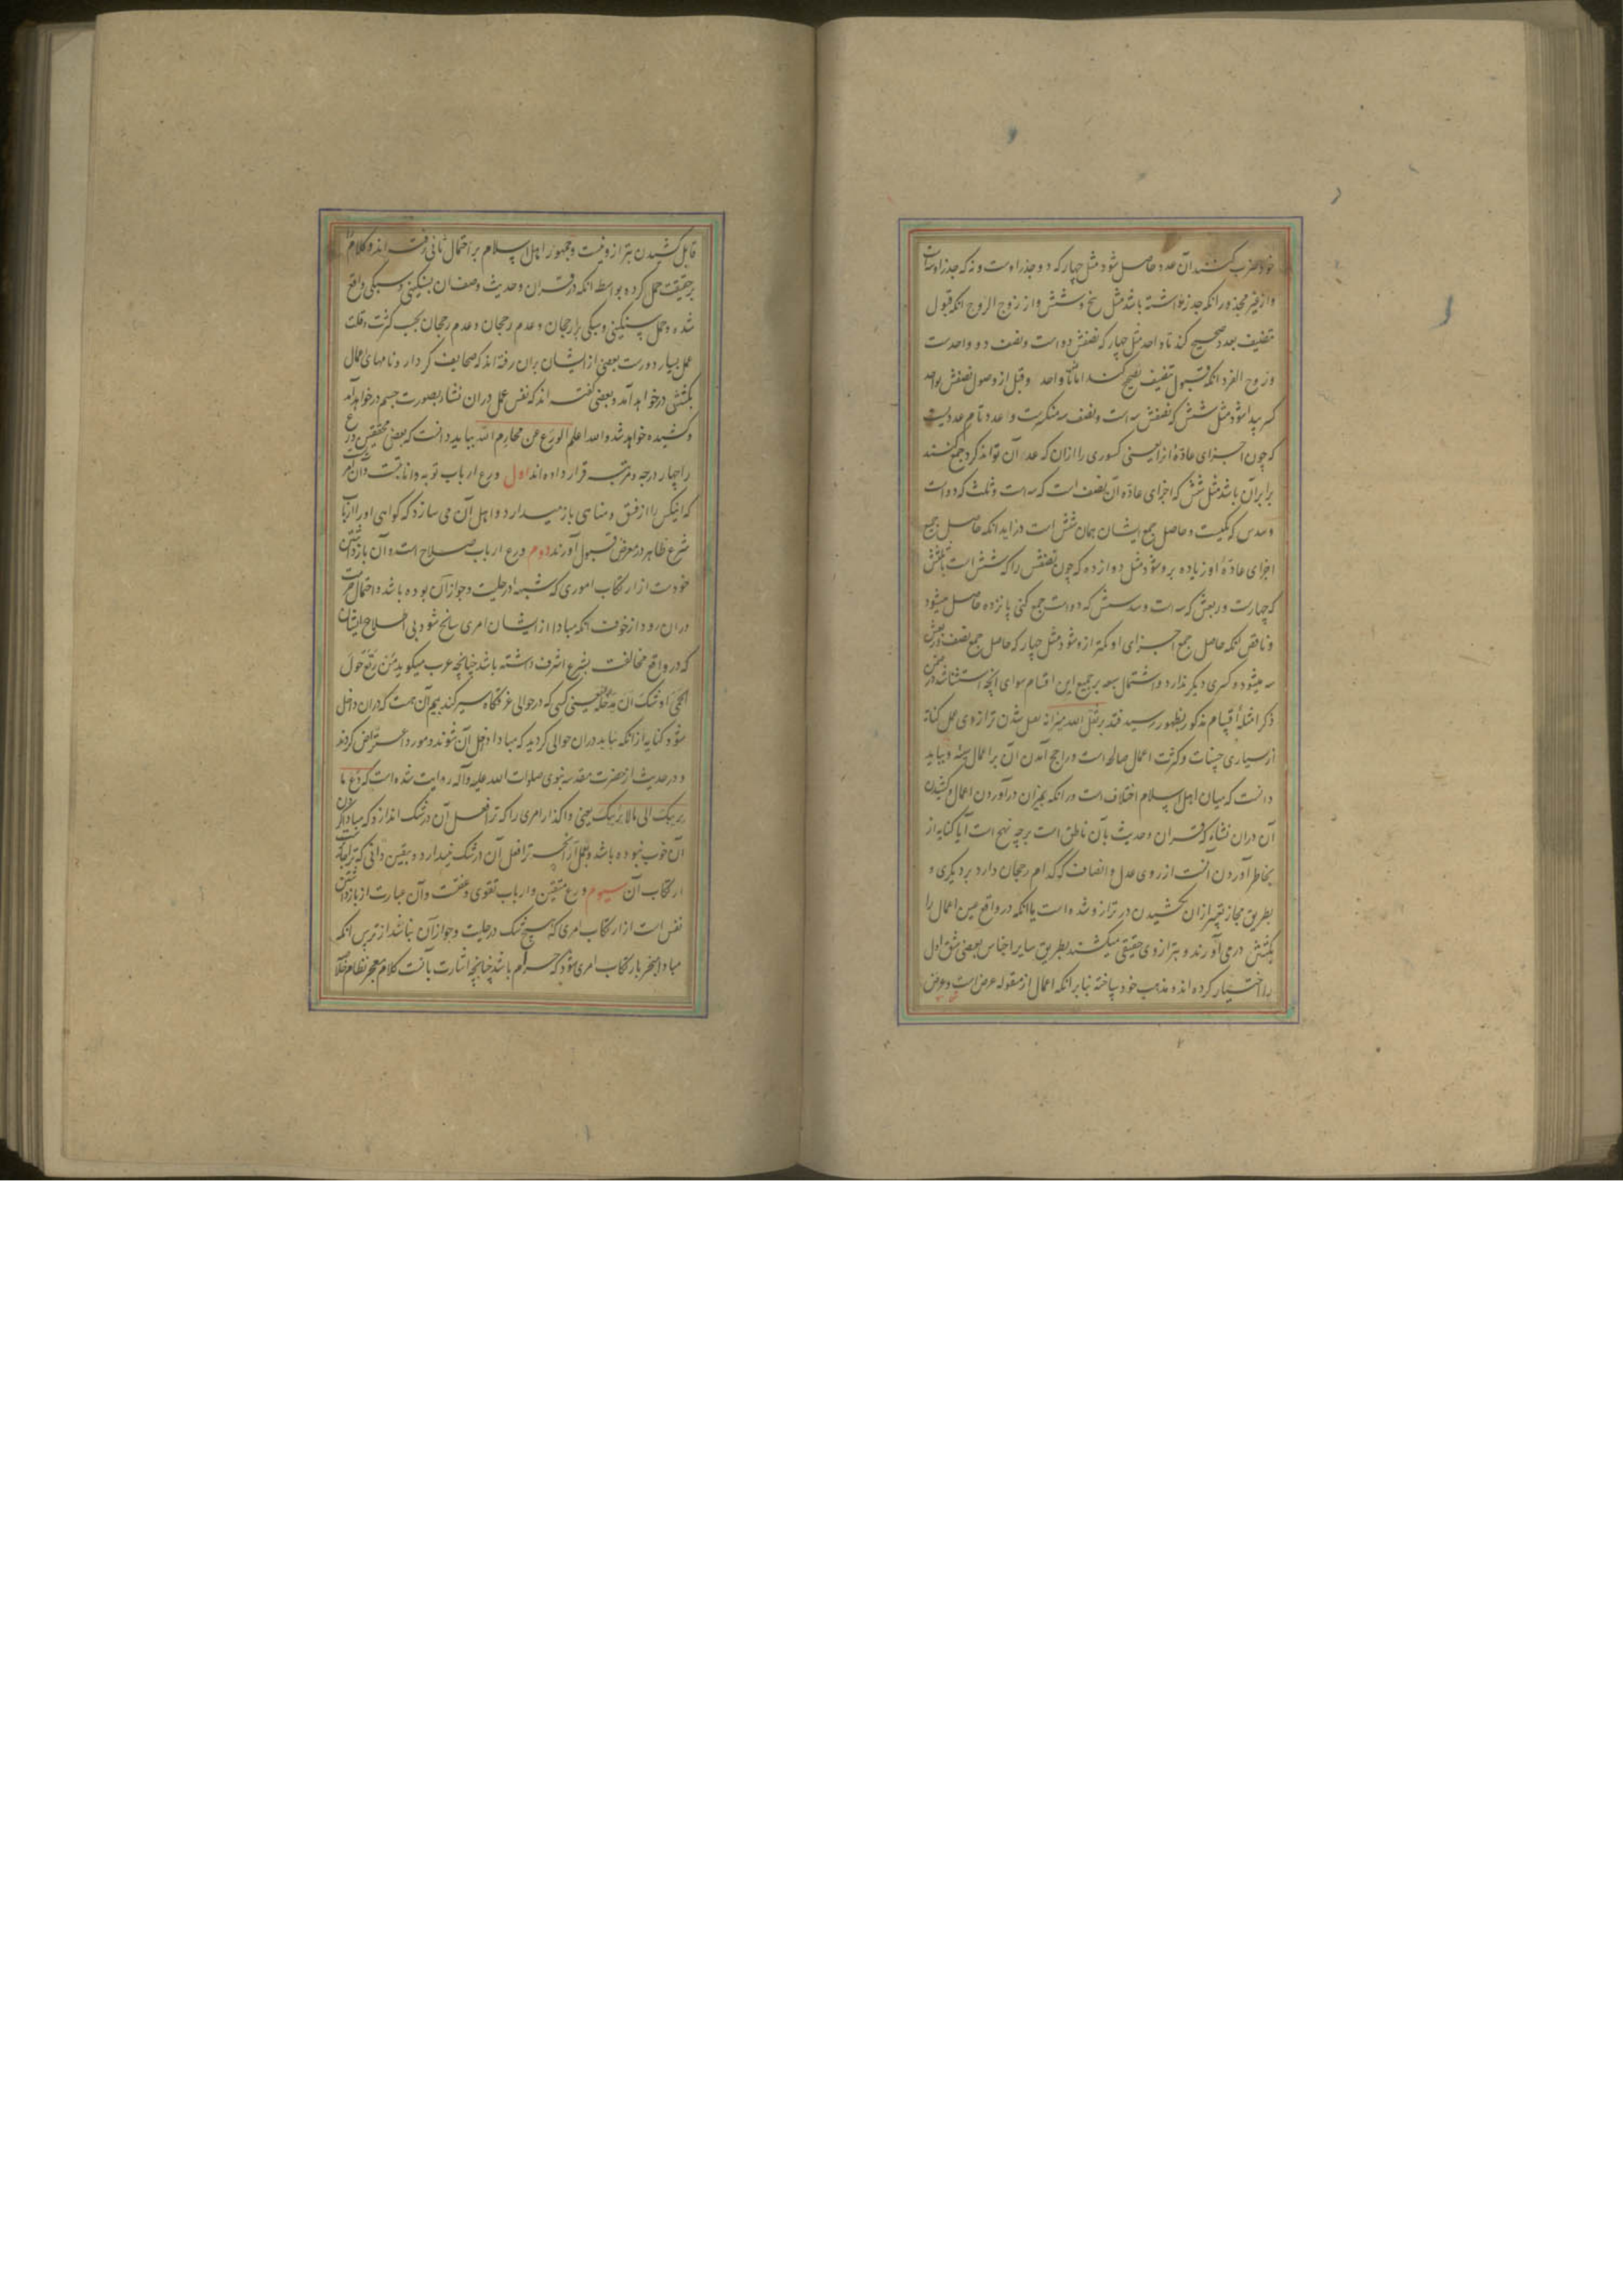 خود ضرب کنند آن عدد حاصل شود مثل چهار که دو جذر اوست و نه که جذر او سه است
و از غیر مجذور انکه جذر نداشته باشد مثل پنج و شش و از زوج الزوج انکه قبول
تنصیف بعدد صحیح کند تا واحد مثل چهار که نصفش دو است و نصف دو واحدست
و زوج الفرد انکه قبول تنصیف صحیح کند اما نه تا واحد و قبل از وصول نصفش بواحد
کسر پیدا شود مثل شش که نصفش سه است و نصف سه منکسرست و اعدد تام عددیست
که چون اجزای عادّهٔ انرا یعنی کسوری را ازان که عدّ آن تواند کرد جمع کنند
برابر آن باشد مثل شش که اجزای عادّه آن نصف است که سه است و ثلث که دو است
و سدس که یکیست و حاصل جمع ایشان همان شش است و زاید انکه حاصل جمع
اجزای عادّهٔ او زیاده برو شود مثل دوازده که چون نصفش را که شش است با ثلثش
که چهارست و ربعش که سه است و سدسش که دو است جمع کنی پانزده حاصل میشود
و ناقص انکه حاصل جمع اجزای او کمتر ازو شود مثل چهار که حاصل جمع نصف و ربعش
سه میشود و کسری دیگر ندارد و اشتمال سبعه بر جمیع این اقسام سوای انچه استثنا شد در ضمن
ذکر امثلهٔ اقسام مذکور بظهور رسید فقد یرثقل الله میزانه ثقیل شدن ترازوی عمل کنایه
از بسیاری حسنات و کثرت اعمال صالحه است و راجح آمدن آن بر اعمال سیئه و بباید
دانست که میان اهل اسلام اختلاف است در انکه بمیزان درآوردن اعمال و کشیدن
آن دران نشاه که قران و حدیث بآن ناطق است بر چه نهج است آیا کنایه از
بخاطر آوردن آنست از روی عدل و انصاف که کدام رجحان دارد بر دیگری و
بطریق مجاز تعبیر ازان بکشیدن در ترازو شده است یا انکه در واقع عین اعمال را
بکشش درمی آورند و بترازوی حقیقی میکشند بطریق سایر اجناس بعضی شق اول
را اختیار کرده اند و مذهب خود ساخته بنابر انکه اعمال از مقوله عرض است و عرض
قابل کشیدن بترازو نیست و جمهور اهل اسلام بر احتمال ثانی رفته اند و کلام را
بر حقیقت حمل کرده بواسطه انکه در قران و حدیث وصف ان بسنگینی و سبکی واقع
شده و حمل سنگینی و سبکی برجحان و عدم رجحان و عدم رجحان بحسب کثرت و قلت
عمل بسیار دورست بعضی از ایشان بران رفته اند که صحایف کردار و نامهای اعمال
بکشش درخواهد آمد و بعضی گفته اند که نفس عمل دران نشاء بصورت جسم درخواهد آمد
و کشیده خواهد شد والله اعلم الورع عن محارم الله بباید دانست که بعضی محققین ورع
را چهار درجه و مرتبه قرار داده اند اول ورع ارباب توبه و انابتست و آن امریست
که انیکس را از فسق و مناهی باز میدارد و اهل آن می سازد که گواهی او را ارباب
شرع ظاهر در معرض قبول آورند دوم ورع ارباب صلاح است و آن بازداشتن
خودست از ارتکاب اموری که شبهه در حلیت و جواز آن بوده باشد و احتمال حرمت
دران رود از خوف انکه مبادا از ایشان امری سانح شود بی اطلاع ایشان
که در واقع مخالفت بشرع اشرف داشته باشد چنانچه عرب میگوید من رتع حول
الحمی اوشک ان یدخله یعنی کسی که در حوالی غرقگاه سیر کند بیم آن هست که دران داخل
شود کنایه از انکه نباید دران حوالی گردید که مبادا داخل آن شوند و مورد اعتراض گردند
و در حدیث از حضرت مقدسه نبوی صلوات الله علیه وآله روایت شده است که دع ما
یریبک الی ما لا یریبک یعنی واگذار امری را که ترا فعل آن در شک اندازد که مبادا کردن
آن خوب نبوده باشد و بعمل آر آنچه ترا فعل آن در شک نیندازد و بیقین دانی که ترا جایز است
ارتکاب آن سیوم ورع متقین و ارباب تقوی و عفت و آن عبارت از بازداشتن
نفس است از ارتکاب امری که هیچ شک در حلیت و جواز آن نباشد از ترس انکه
مبادا منجر بارتکاب امری شود که حرام باشد چنانچه اشارت بآنست کلام معجز نظام